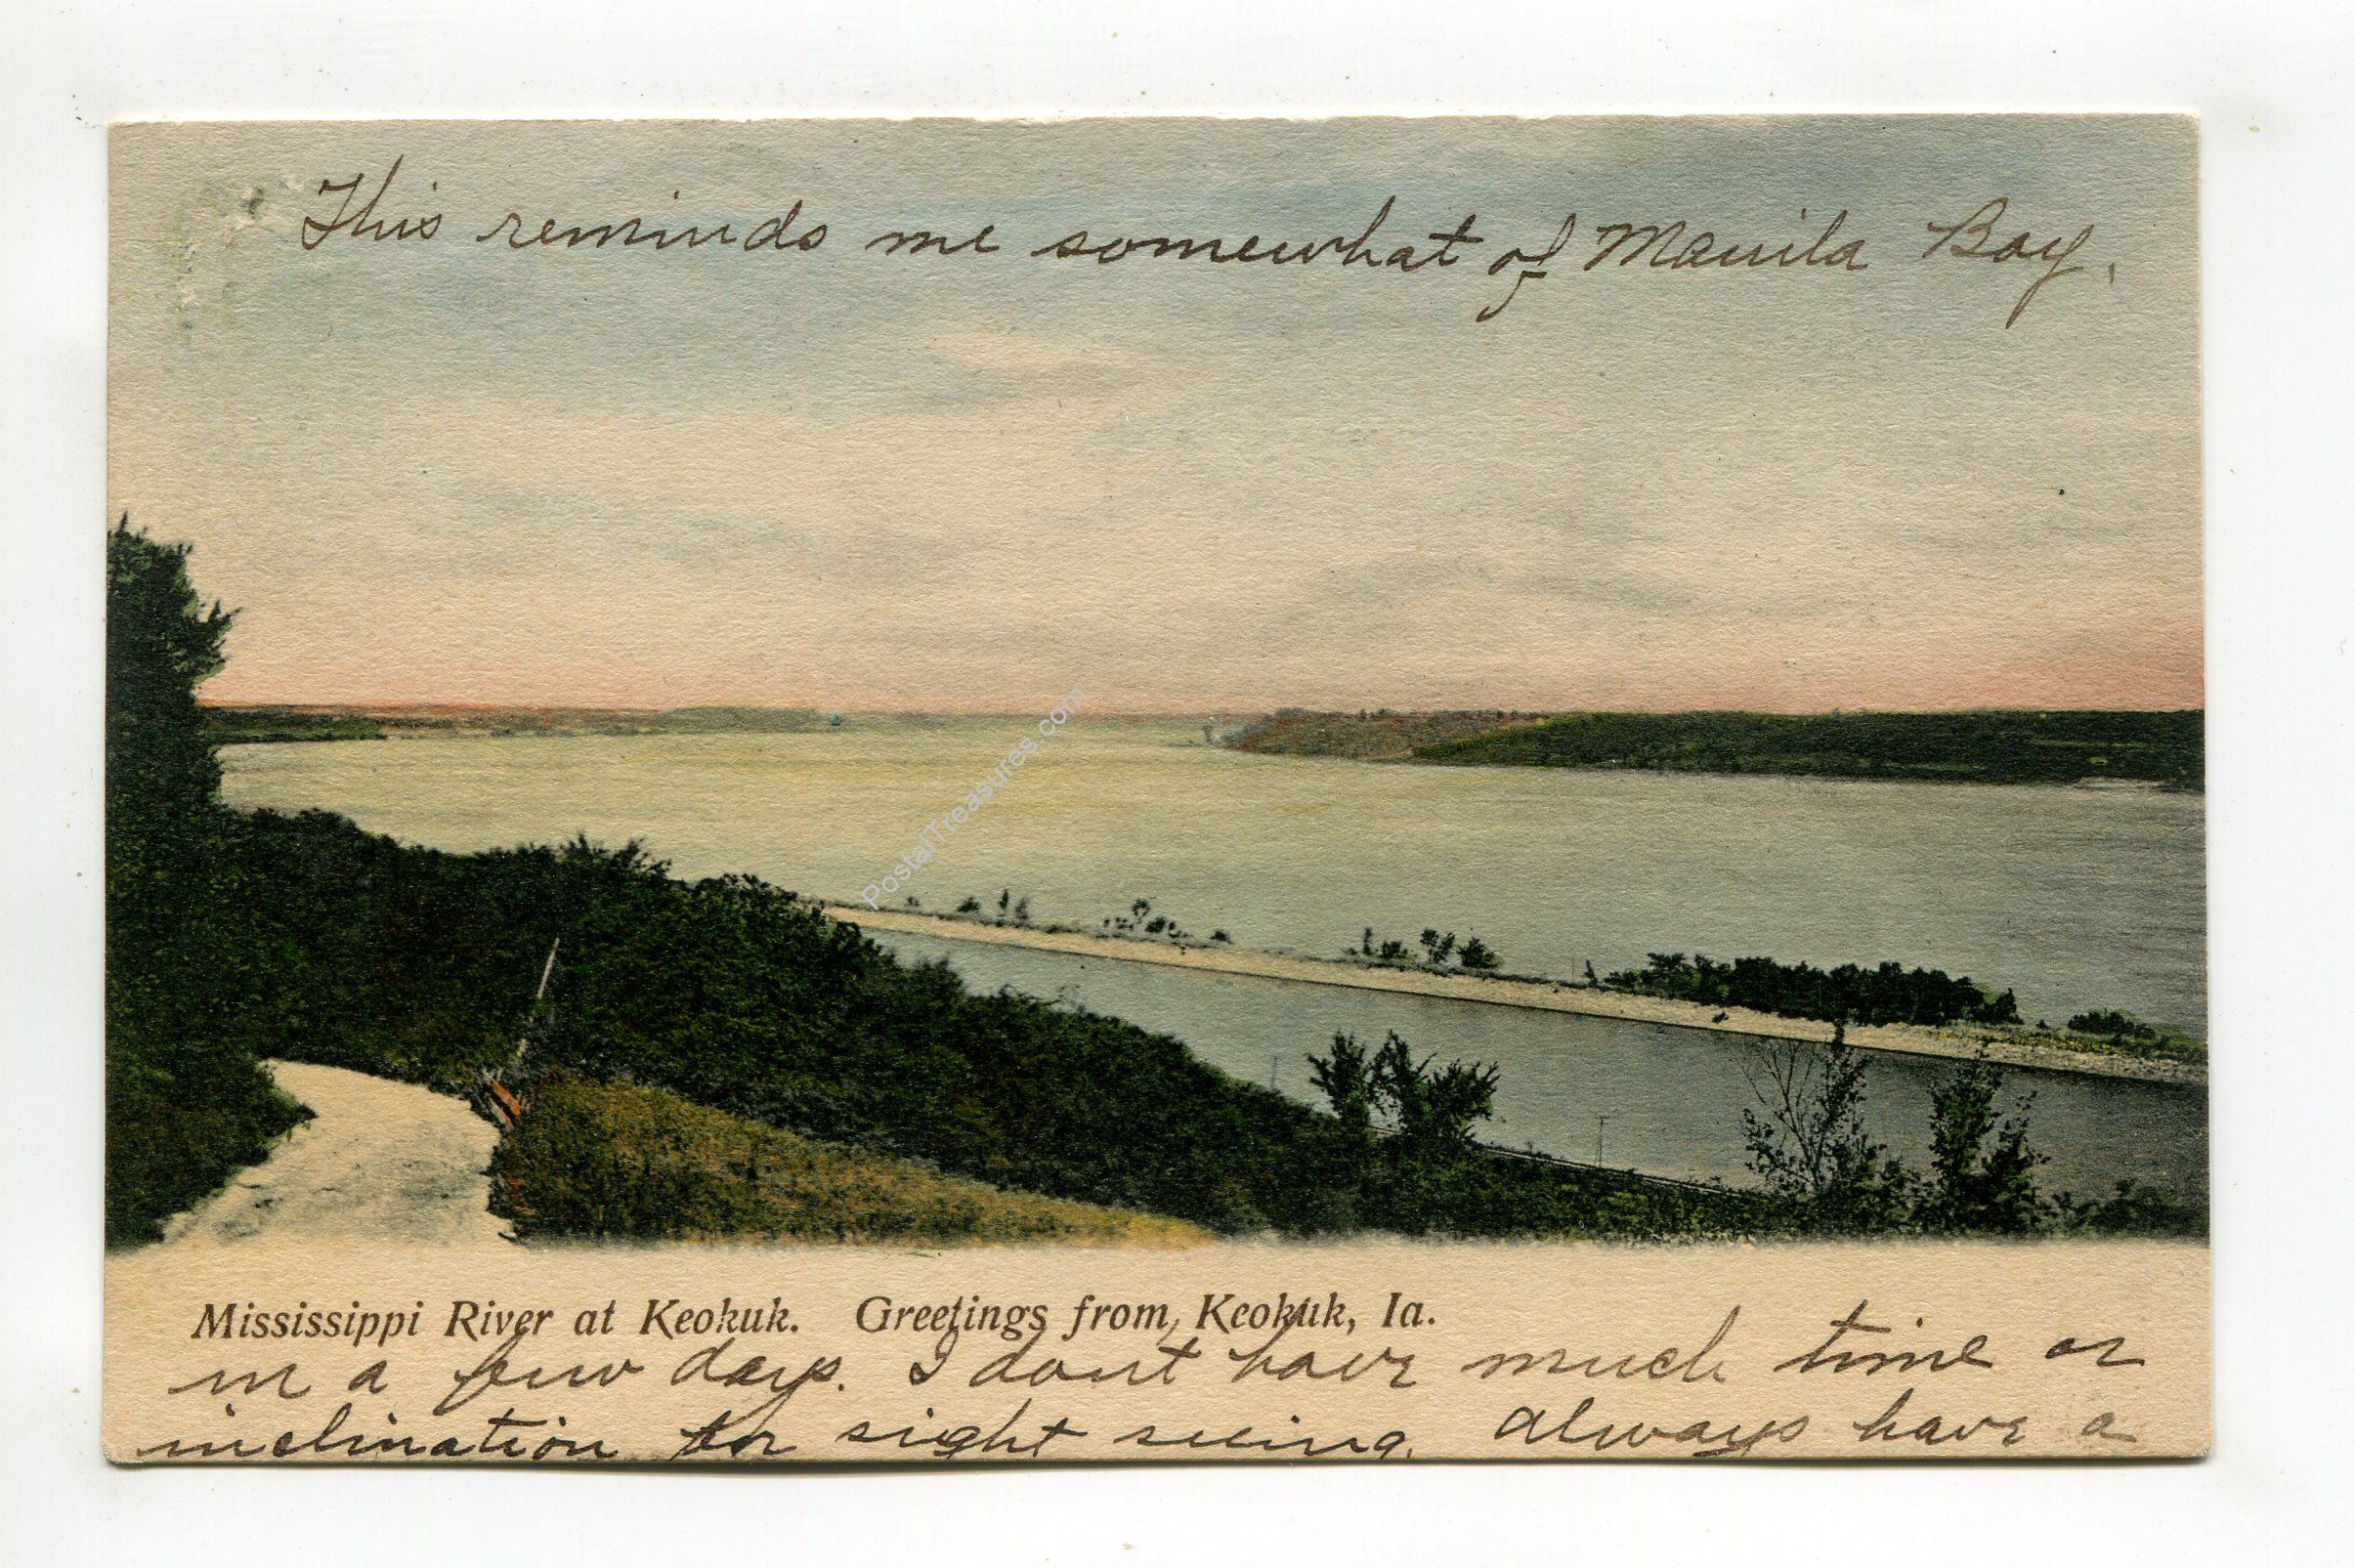 This reminds me somewhat of Manila Bay.
PostalTreasures.com
Mississippi River at Keokuk. Greetings from Keokuk, Ia.
in a few days. I dont have much time or
inclination for sight seeing. Always have a